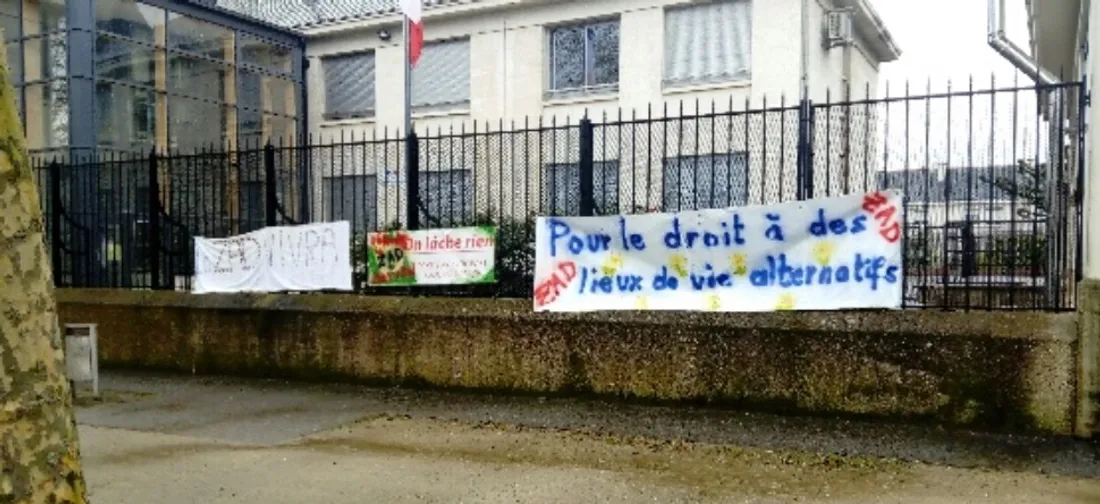 ZAD VIVRA
ZAD
On lâche rien
Pour le droit à des
ZAD
ZAD
lieux de vie alternatifs